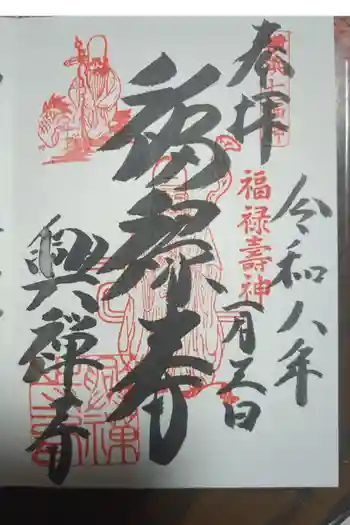 奉拝
福禄壽神
令和八年
一月五日
福禄寿
興禅寺